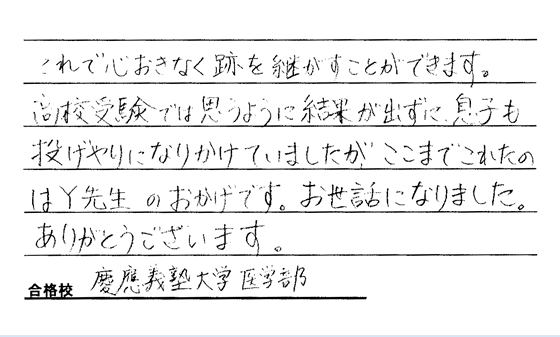 これで心おきなく跡を継がすことができます。
高校受験では思うように結果が出ずに、息子も
投げやりになりかけていましたが、ここまでこれたの
はY先生のおかげです。お世話になりました。
ありがとうございます。
合格校 慶應義塾大学医学部